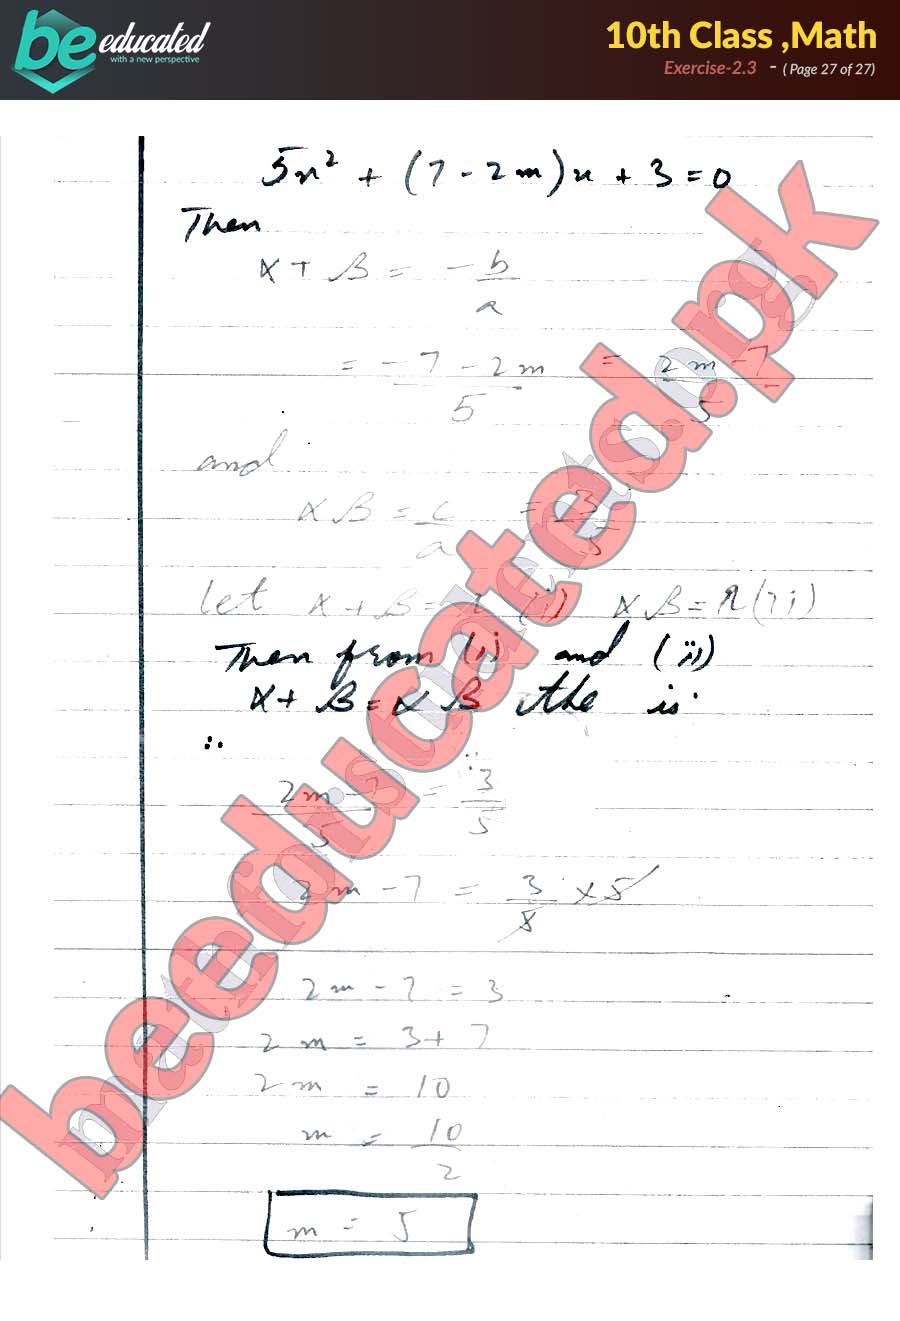 be educated
with a new perspective
10th Class ,Math
Exercise-2.3 - ( Page 27 of 27)
5x² + (7 - 2m)x + 3 = 0
Then
α + β = -b/a
= -7 - 2m/5 = 2m - 7/5
and
αβ = c/a = 3/5
Let α + β = (i) αβ = λ (ii)
Then from (i) and (ii)
α + β = αβ the is
∴
2m - 7/5 = 3/5
2m - 7 = 3/5 × 5
2m - 7 = 3
2m = 3 + 7
2m = 10
m = 10/2
m = 5
beeducated.pk